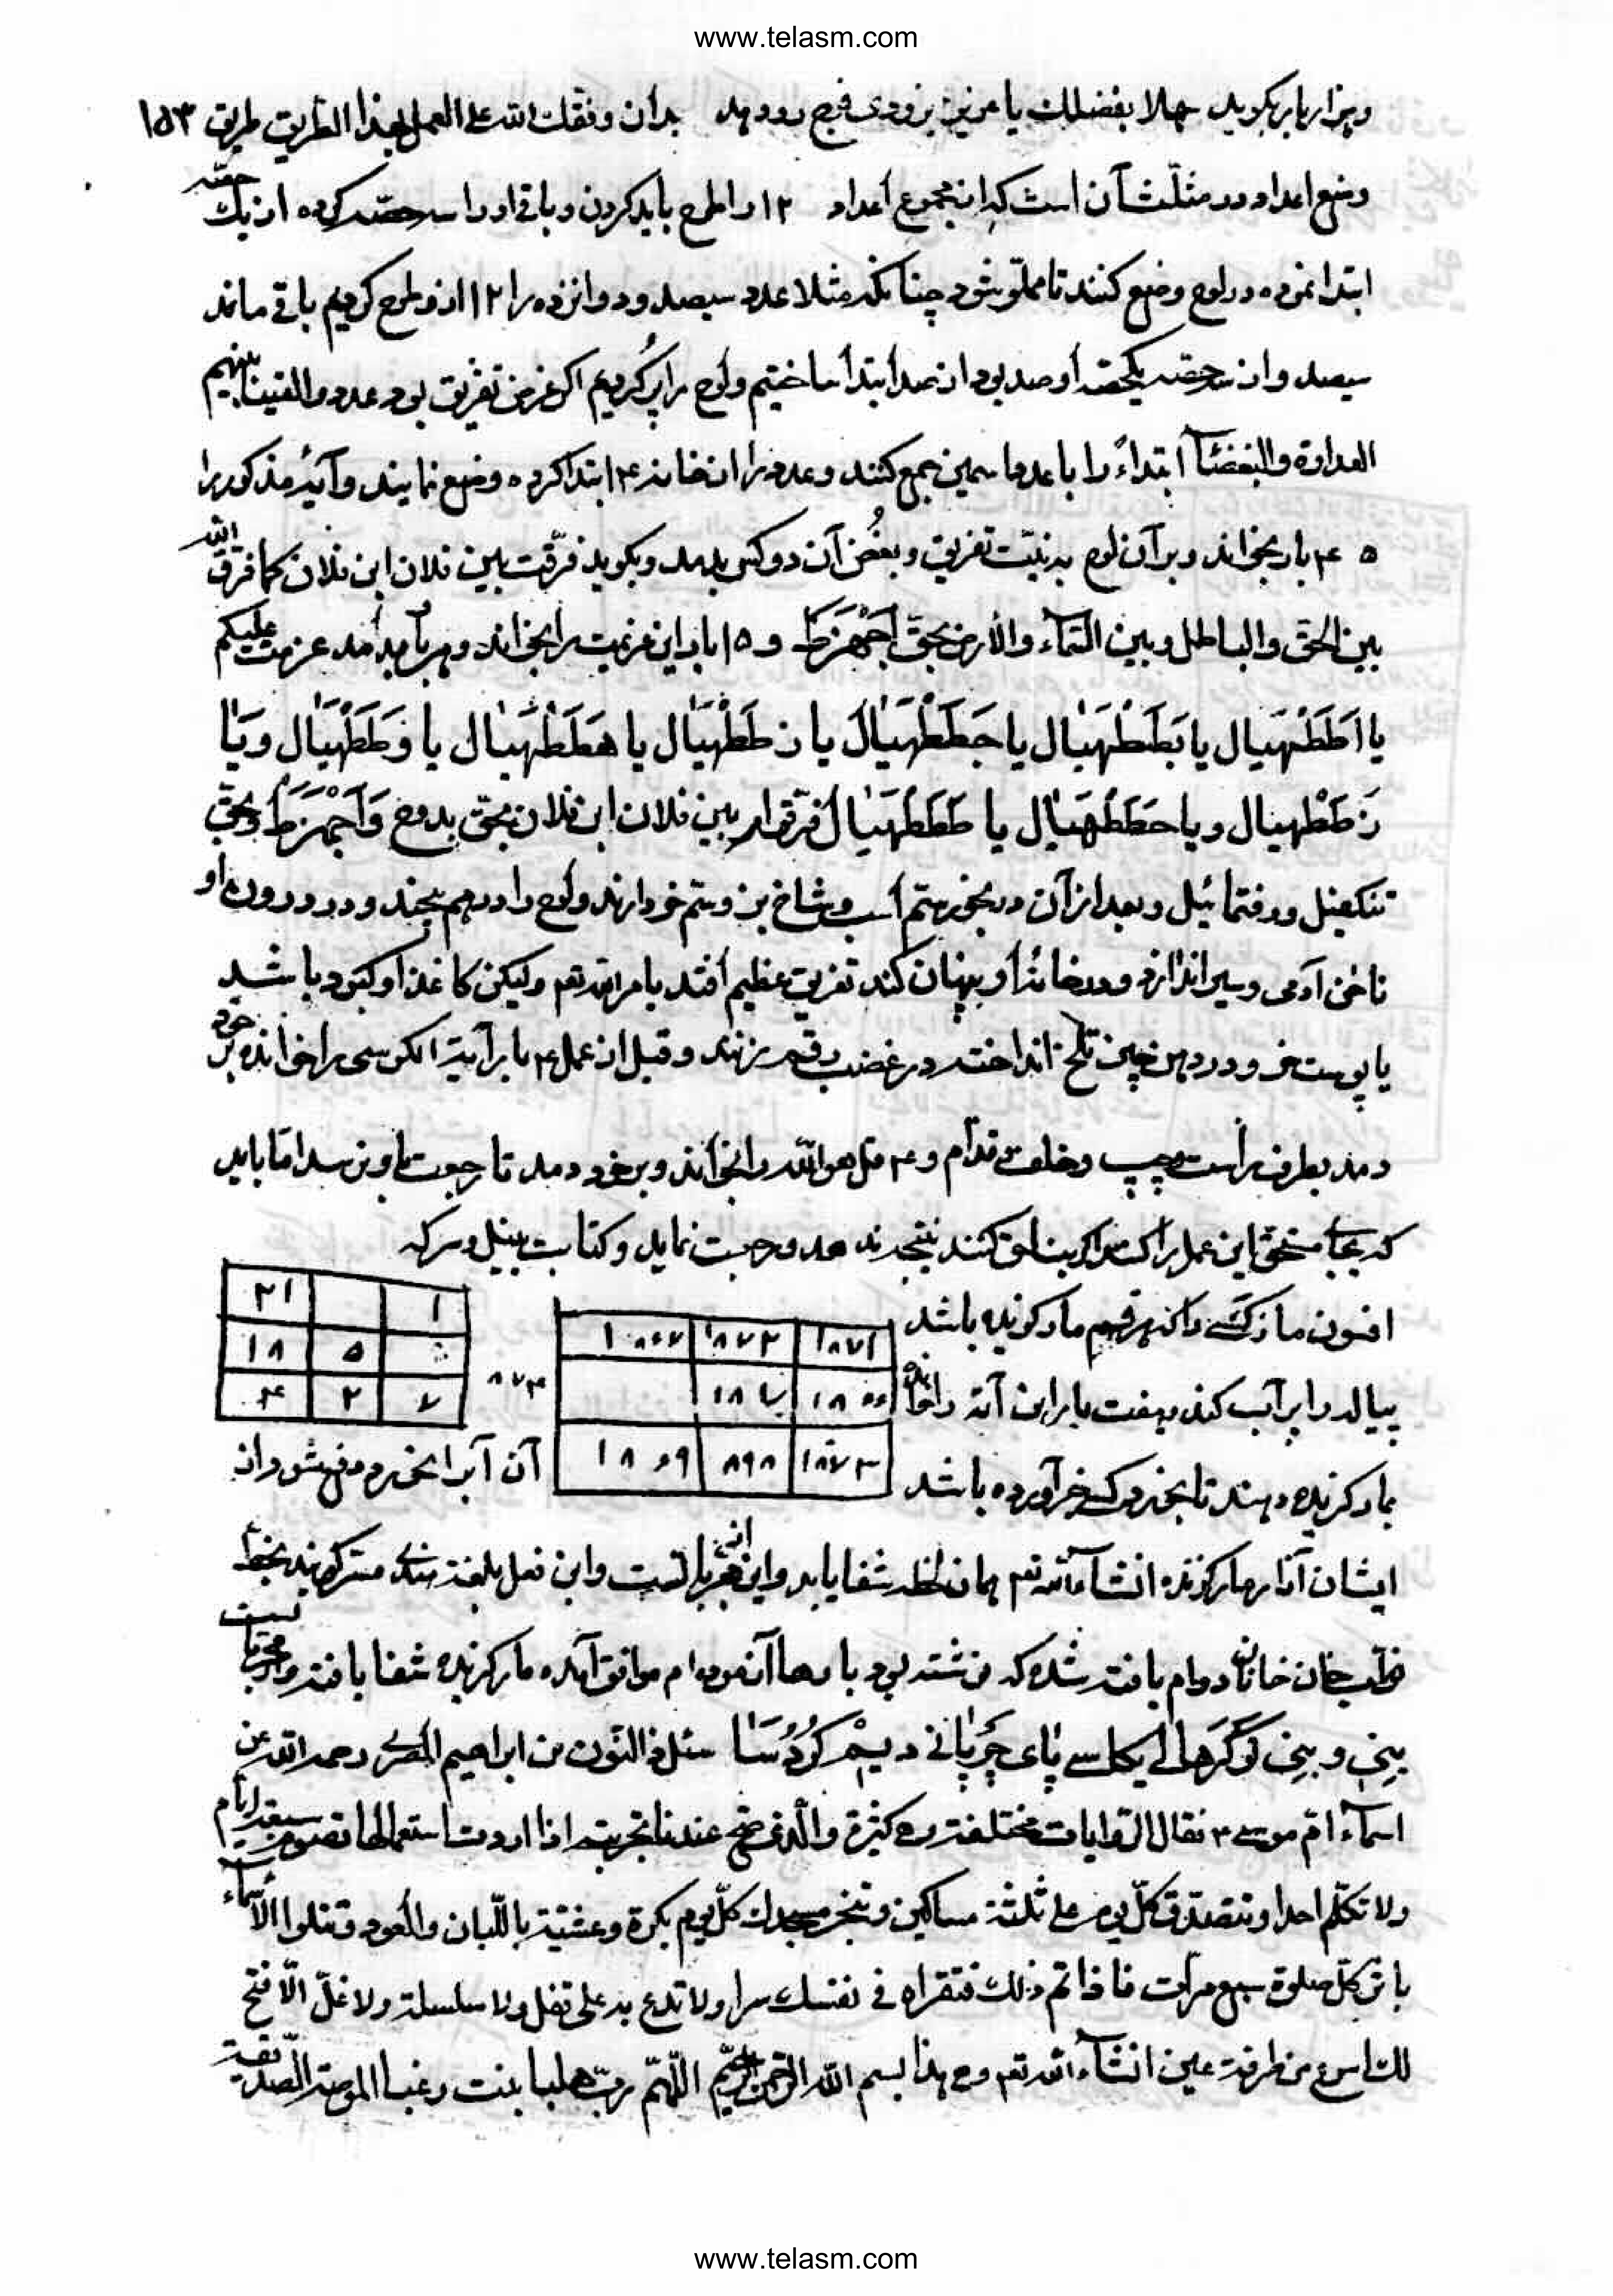 www.telasm.com
وهزار بار بکوید سهلا بفضلک یا عزیز بزودی فرج رو دهد بدان وفقک الله علی العمل بهذا الطریق طریق ۱۵۳
وضع اعداد در مثلّث آن است که از مجموع أعداد ۱۲ را طرح باید کردن و باقی او را سه حصّه کرده از یک حصّه
ابتدا نموده در لوح وضع کنند تا مملوّ شود چنانکه مثلا عدد سیصد و دوانزده را ۱۲ از و طرح کردیم باقی ماند
سیصد و از سه حصّه یکحصّه أو صد بود از صد أبتدا ساختیم و لوح را پر کردیم اکر غرض تفریق بود عدد والقینا بینهم
العداوة والبغضآء ابتداءً را با عدد اسمین جمع کنند و عدد را از خانه ۴ ابتدا کرده وضع نمایند و آیهٔ مذکور را
۴۵ بار بخواند و بر آن لوح به نیّت تفریق و بغض آن دو کس بدمد و بکوید فرّقت بین فلان ابن فلان کما فرّق الله
بین الحق والباطل و بین السّمآء والأرض بحقّ اَجْهَزَطْ و ۱۵ بار این عزیمت را بخواند و هر بار بدمد عزمت علیکم
یا اَطَطْهَیَال یا بَطَطْهَیَال یا جَطَطْهَیَالَ یا دَطَطْهَیَال یا هَطَطْهَیَال یا وَطَطْهَیَال وَیَا
زَطَطْهیال و یا حَطَطْهَیَال یا طَطَطْهَیَال فرّقوا بین فلان ابن فلان بحقّ بدوح وَاَجْهَزَطْ وبحقّ
تنکفیل و رفتمائیل و بعد از آن در بخور سّم أسب و شاخ بز و سّم خر دارند و لوح را در هم پیچند و در درون او
ناخن آدمی و سیر اندازد و در خانهٔ او پنهان کند تفریق عظیم افتد بامر الله تعم ولیکن کاغذ او کبود باشد
یا پوست خر و در دهن چیز تلخ انداخته در غضب رقم زند و قبل از عمل ۴ بار آیة الکرسی را خوانده بر خود
دمد بطرف راست و چپ و خلف و قدّام و ۴ قل هو الله را بخواند و بر خود دمد تا رجعت باو نرسد امّا باید
که بجای مستحق این عمل را کند اکر بناحق کنند نتیجه ندهد و رجعت نماید و کتابت بنیل و سرکه
۲۱ ۱
۱۸ ۵
۴ ۲ ۷
۱۸۷۲ ۱۸۷۱
۱۸۷۳
افسون مار کسی را که هر قسم مار کزیده باشد
پیاله را پر آب کند و هفت بار این آیه را خوانده
بمار کزیده دهند تا بخورد کسی خبر آورده باشد آن آب را بخورد دفع شود از
ایشان آزار مار کزنده انشآء الله تعم همان لحظه شفا یابد و این از مجرباتست و این نعل بلغة هندی مشتر کویند بخط
نواب خان خانان دوام یافته شده که نوشته بود بارها آزمودام موافق آمده مار کزیده شفا یافته و مجرباتست
سئل ذ النّون من ابراهیم المصری رحمه الله عن
اسمآء امّ موسی ۴ فقال الرّوایات مختلفة کثیرة والّذی صحّ عندنا تجربته اذا اردت استعمالها تصوم سبعة ایّام
ولا تکلّم احدا و تتصدّق کلّ یوم علی ثلثة مساکین و تبخر مسجدك کلّ یوم بکرة وعشیّة باللّبان والعود وتتلوا الأسمآء
باثر کلّ صلوة سبع مرّات فاذا تم ذلك فتقراه فی نفسك سرا ولا تدع به علی قفل ولا سلسلة ولا غلّ الّا فتح
لك اسرع من طرفة عین انشآء الله تعم وهی هذا بسم الله الرّحمن الرّحیم اللّهمّ
www.telasm.com